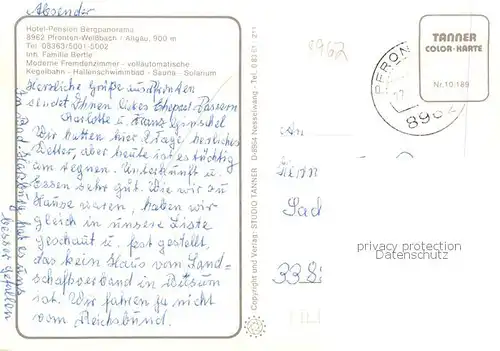 Absender
Hotel-Pension Bergpanorama
8962 Pfronten-Weißbach / Allgäu, 900 m
Tel. 08363/5001-5002
Inh. Familie Bertle
Moderne Fremdenzimmer - vollautomatische
Kegelbahn - Hallenschwimmbad - Sauna - Solarium
Herzliche Grüße aus Pfronten
sendet Ihnen liebes Ehepaar
Charlotte u. Franz
Wir hatten hier 4 Tage herrliches
Wetter, aber heute ist es tüchtig
am regnen. Unterkunft u.
Essen sehr gut. Wie wir zu
Hause waren, haben wir
gleich in unsere Liste
geschaut u. fest gestellt,
das kein Haus vom Land=
schaftsverband in Büsum
ist. Wir fahren ja nicht
vom Reichsbund.
In Bad hat es uns
besser gefallen
Copyright und Verlag: STUDIO TANNER D-8964 Nesselwang - Tel. 08361
8962
TANNER
COLOR-KARTE
Nr. 10 189
PFRON
8962
An
Herrn
Lad
338
privacy protection
Datenschutz